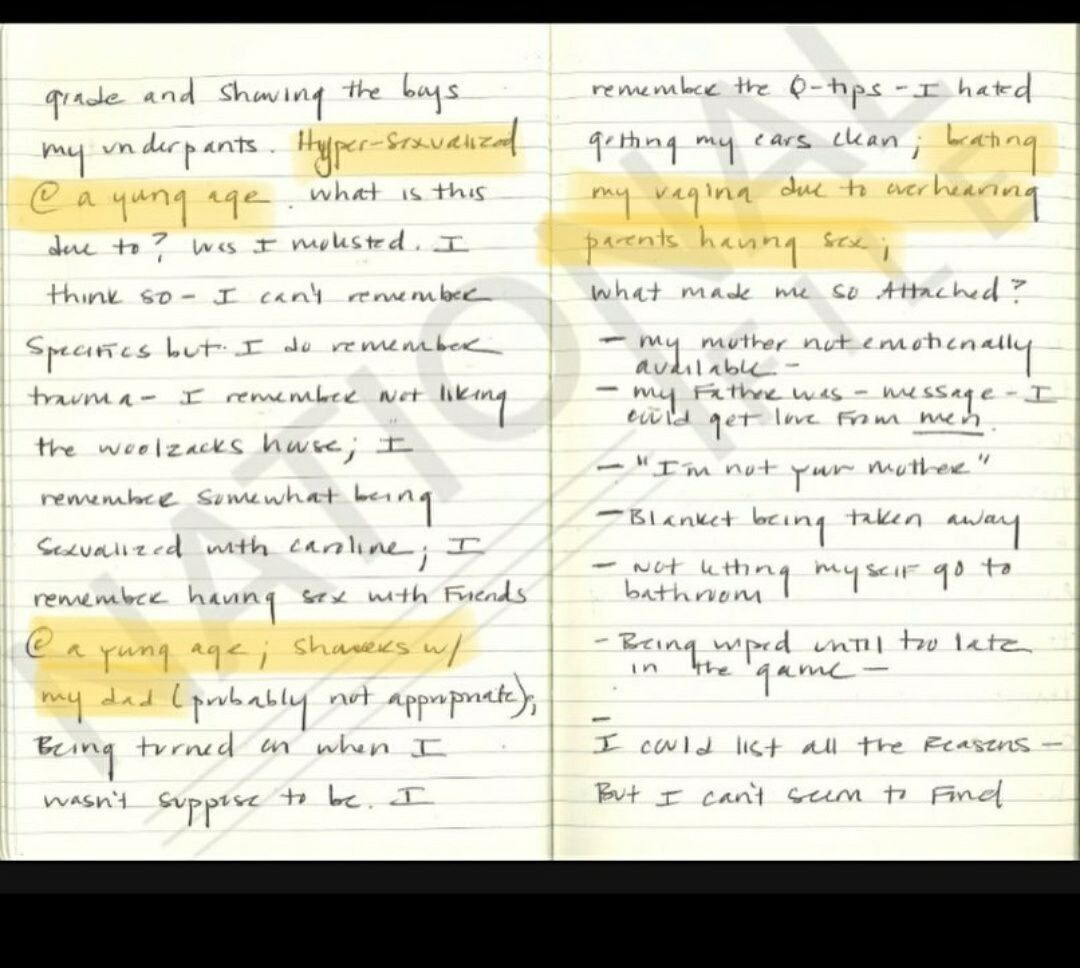 grade and showing the boys
my underpants. Hyper-Sexualized
@ a young age. what is this
due to? Was I molested. I
think so - I can't remember
Specifics but I do remember
trauma - I remember not liking
the woolzacks house; I
remember somewhat being
Sexualized with caroline; I
remember having sex with Friends
@ a young age; showers w/
my dad (probably not appropriate);
Being turned on when I
wasn't suppose to be. I
remember the Q-tips - I hated
getting my ears clean; beating
my vagina due to overhearing
parents having sex;
What made me so Attached?
- my mother not emotionally
available -
- my Father was - message - I
could get love From men.
- "I'm not your mother"
- Blanket being taken away
- Not letting myself go to
bathroom
- Being wiped until too late
in the game -
-
I could list all the Reasons -
But I can't seem to Find
NATIONAL
FILE